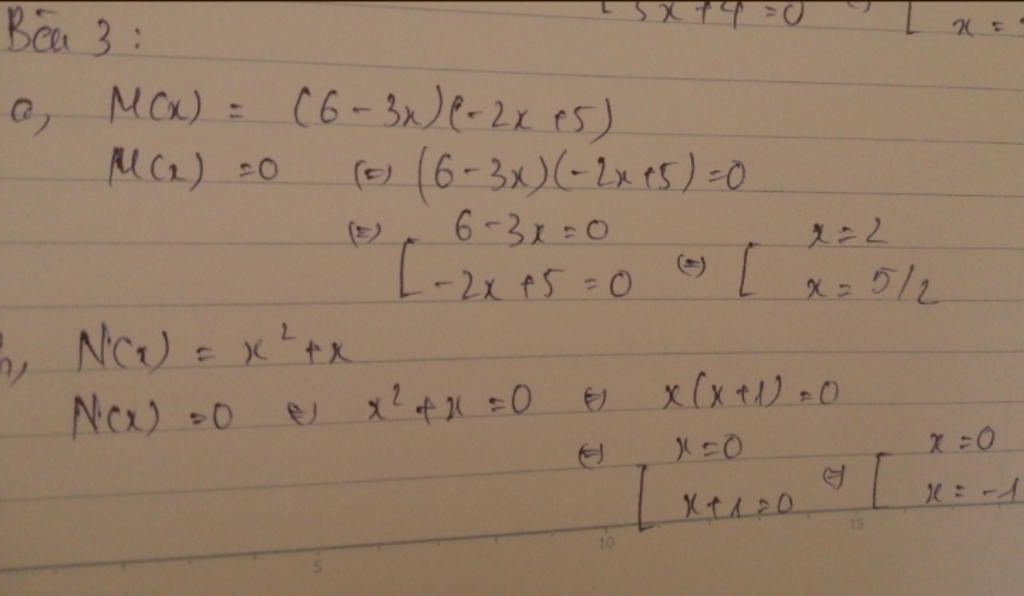 3x+4=0 [ x =
Bài 3 :
a, M(x) = (6-3x)(-2x+5)
M(x) =0 (=) (6-3x)(-2x+5)=0
(=) [ 6-3x=0
-2x+5=0 (=) [ x=2
x=5/2
N(x) = x²+x
N(x) =0 (=) x²+x=0 (=) x(x+1)=0
(=) [ x=0
x+1=0 (=) [ x=0
x=-1
5 10 15